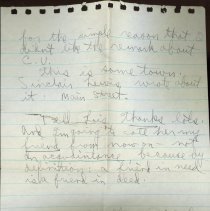 for the simple reason that I
didnt like the remark about
C.U.
This is some town.
Sinclair Lewis wrote about
it: Main Street.
Tell Liz thanks lots.
And I'm going to call her my
friend from now on - not
an acquaintance, because by
definition: a friend in need
is a friend in deed.